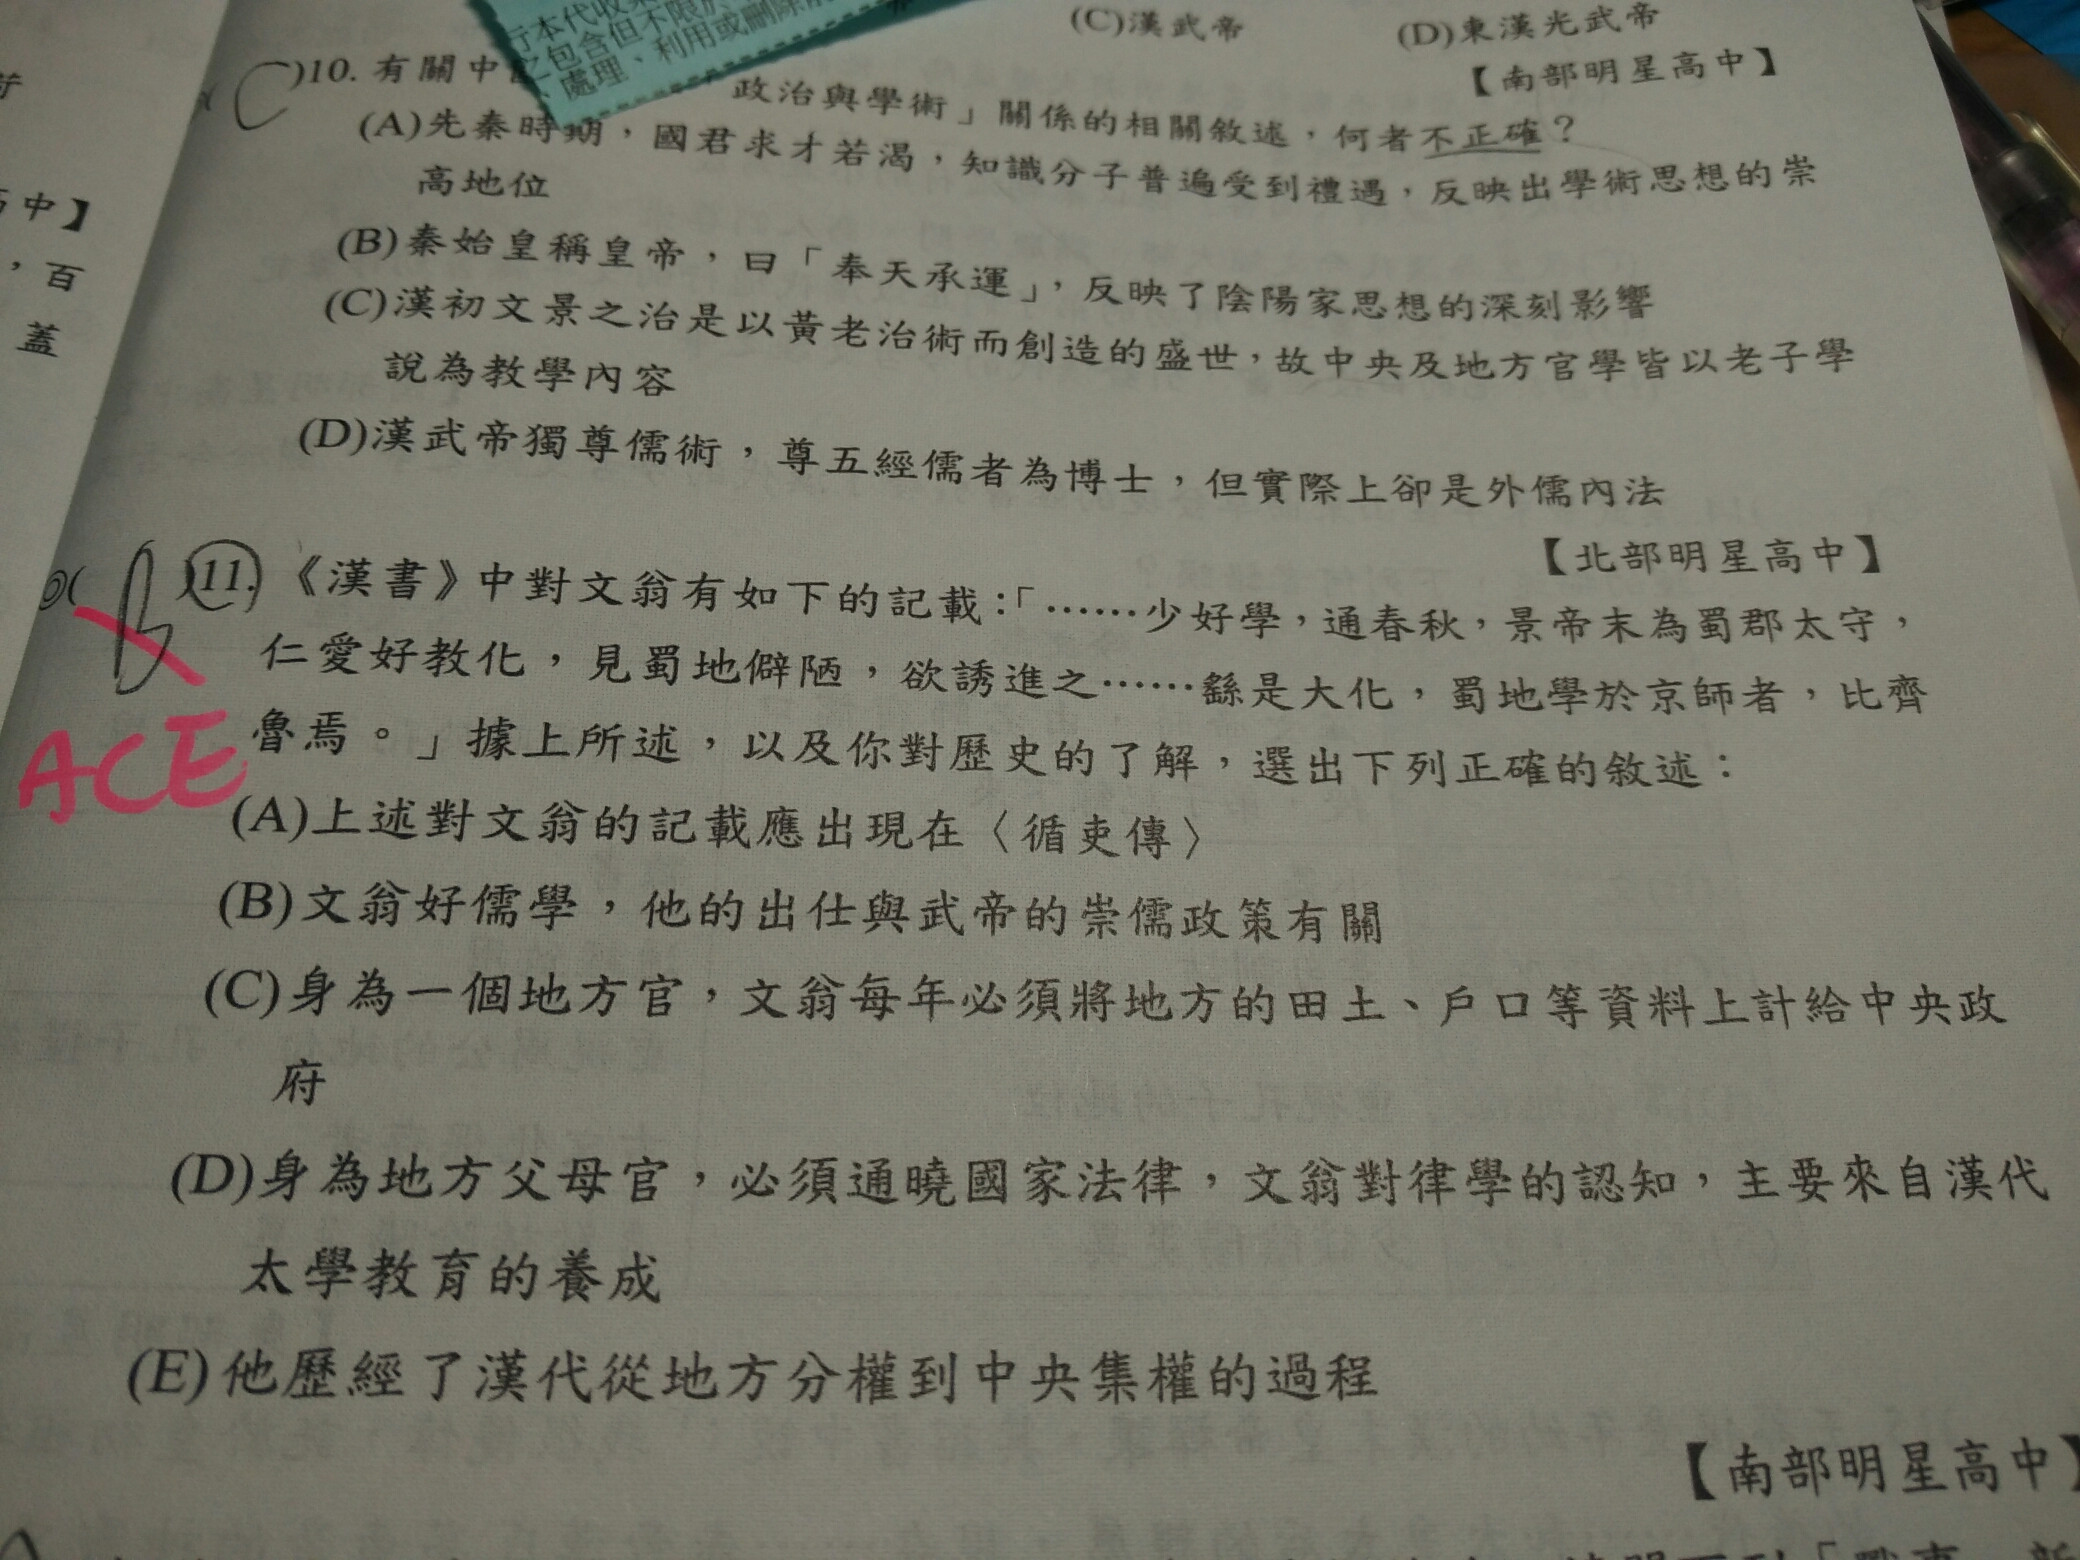 行本代收
包含但不限於
處理、利用或刪除
(C)漢武帝 (D)東漢光武帝
【南部明星高中】
(C)10. 有關中 政治與學術」關係的相關敘述,何者不正確?
(A)先秦時期,國君求才若渴,知識分子普遍受到禮遇,反映出學術思想的崇
高地位
(B)秦始皇稱皇帝,曰「奉天承運」,反映了陰陽家思想的深刻影響
(C)漢初文景之治是以黃老治術而創造的盛世,故中央及地方官學皆以老子學
說為教學內容
(D)漢武帝獨尊儒術,尊五經儒者為博士,但實際上卻是外儒內法
【北部明星高中】
◎( b )11. 《漢書》中對文翁有如下的記載:「……少好學,通春秋,景帝末為蜀郡太守,
仁愛好教化,見蜀地僻陋,欲誘進之……繇是大化,蜀地學於京師者,比齊
魯焉。」據上所述,以及你對歷史的了解,選出下列正確的敘述:
ACE
(A)上述對文翁的記載應出現在〈循吏傳〉
(B)文翁好儒學,他的出仕與武帝的崇儒政策有關
(C)身為一個地方官,文翁每年必須將地方的田土、戶口等資料上計給中央政
府
(D)身為地方父母官,必須通曉國家法律,文翁對律學的認知,主要來自漢代
太學教育的養成
(E)他歷經了漢代從地方分權到中央集權的過程
【南部明星高中】
中】
,百
蓋